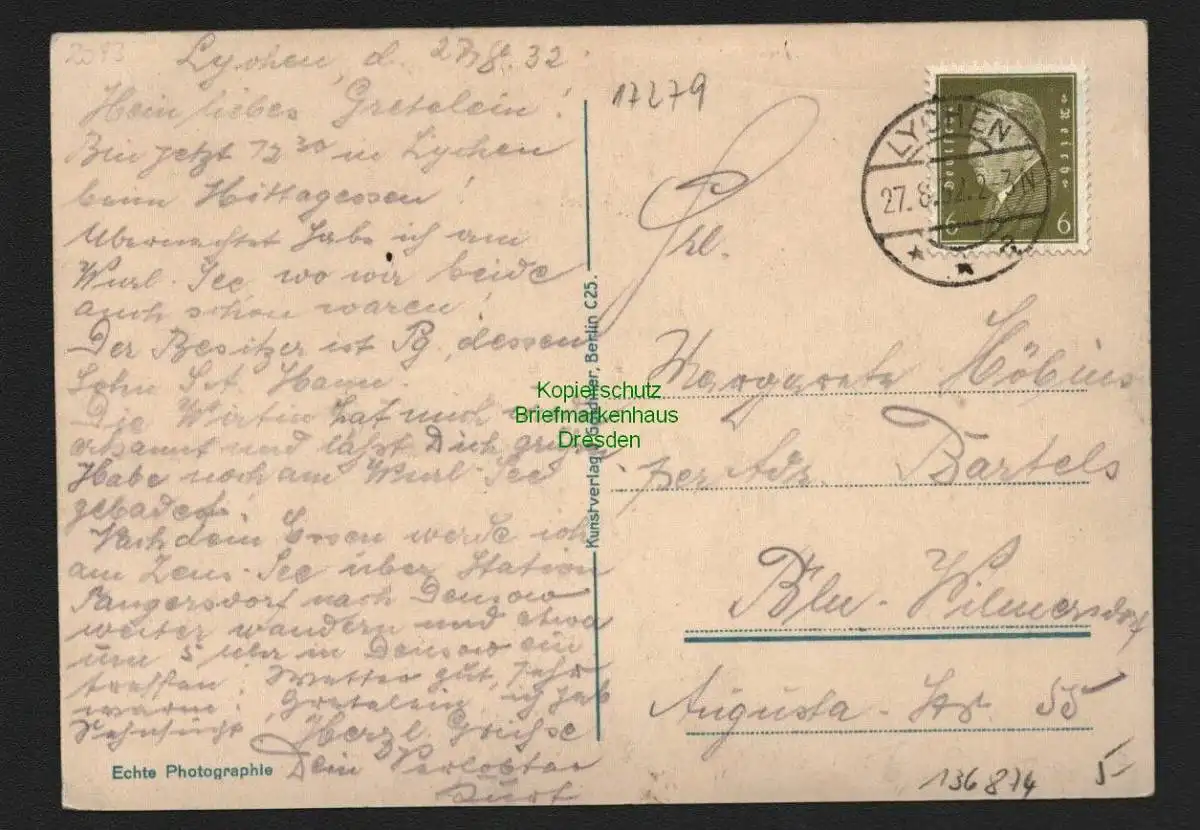 2093
Lychen, d. 27.8.32.
Mein liebes Gretelein!
Bin jetzt 12 30 in Lychen
beim Mittagessen!
Übernachtet habe ich am
Wurl-See, wo wir beide
auch schon waren!
Der Besitzer ist Pg., dessen
Sohn
Die Wirtin hat mich
erkannt und läßt Dich grüßen
Habe noch am Wurl-See
gebadet!
Nach dem Essen werde ich
am Zens-See über Station
Tangersdorf nach Densow
weiter wandern und etwa
um 5 Uhr in Densow ein
treffen! Wetter gut, sehr
warm! Gretelein, ich hab
Sehnsucht Herzl. Grüße
Dein Verlobter
Kurt
Echte Photographie
Kunstverlag Berlin C25.
17279
LYCHEN
27. 8. 32. 2-3 N
a
Deutsches Reich
6 6
Frl.
Margarete Möbius
per Adr. Bartels
Bln-Wilmersdorf
Augusta-Str. 55
136874
5-
Kopierschutz
Briefmarkenhaus
Dresden